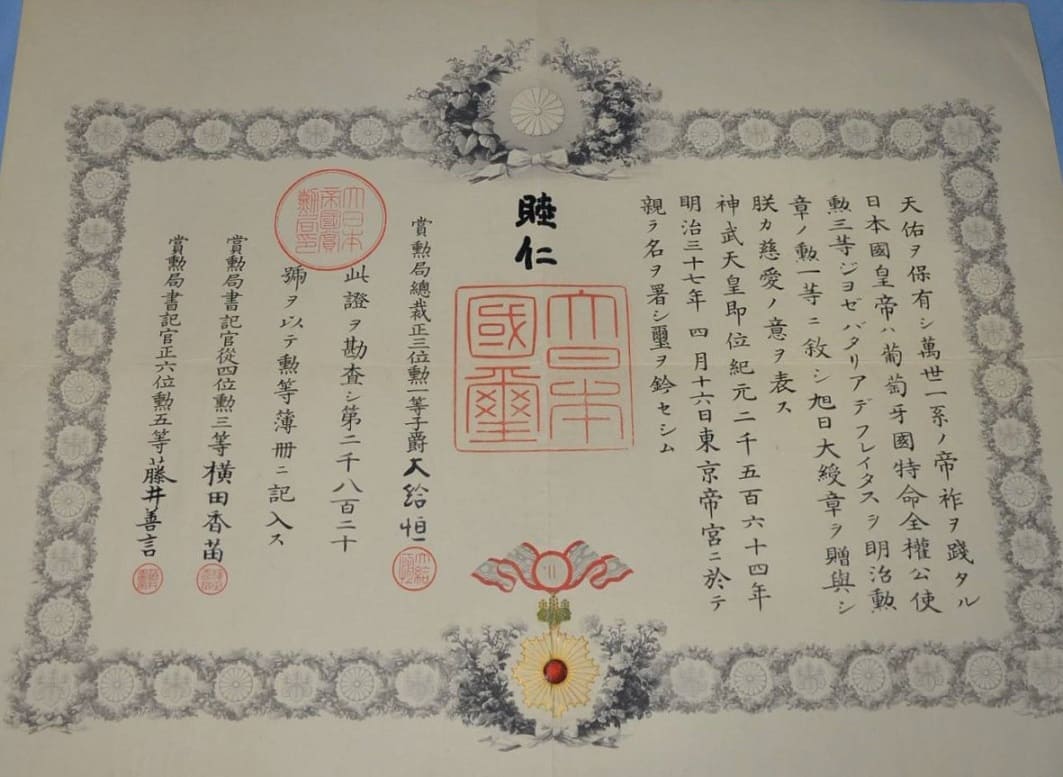 天佑ヲ保有シ萬世一系ノ帝祚ヲ踐タル
日本國皇帝ハ葡萄牙國特命全權公使
勲三等ジヨゼバタリアデフレイタスヲ明治勲
章ノ勲一等ニ敘シ旭日大綬章ヲ贈與シ
朕カ慈愛ノ意ヲ表ス
神武天皇即位紀元二千五百六十四年
明治三十七年四月十六日東京帝宮ニ於テ
親ラ名ヲ署シ璽ヲ鈐セシム
睦仁
大日本
國璽
賞勲局總裁正三位勲一等子爵大給恒
此證ヲ勘査シ第二千八百二十
號ヲ以テ勲等簿册ニ記入ス
大日本
帝國賞
勲局印
賞勲局書記官從四位勲三等横田香苗
賞勲局書記官正六位勲五等藤井善言